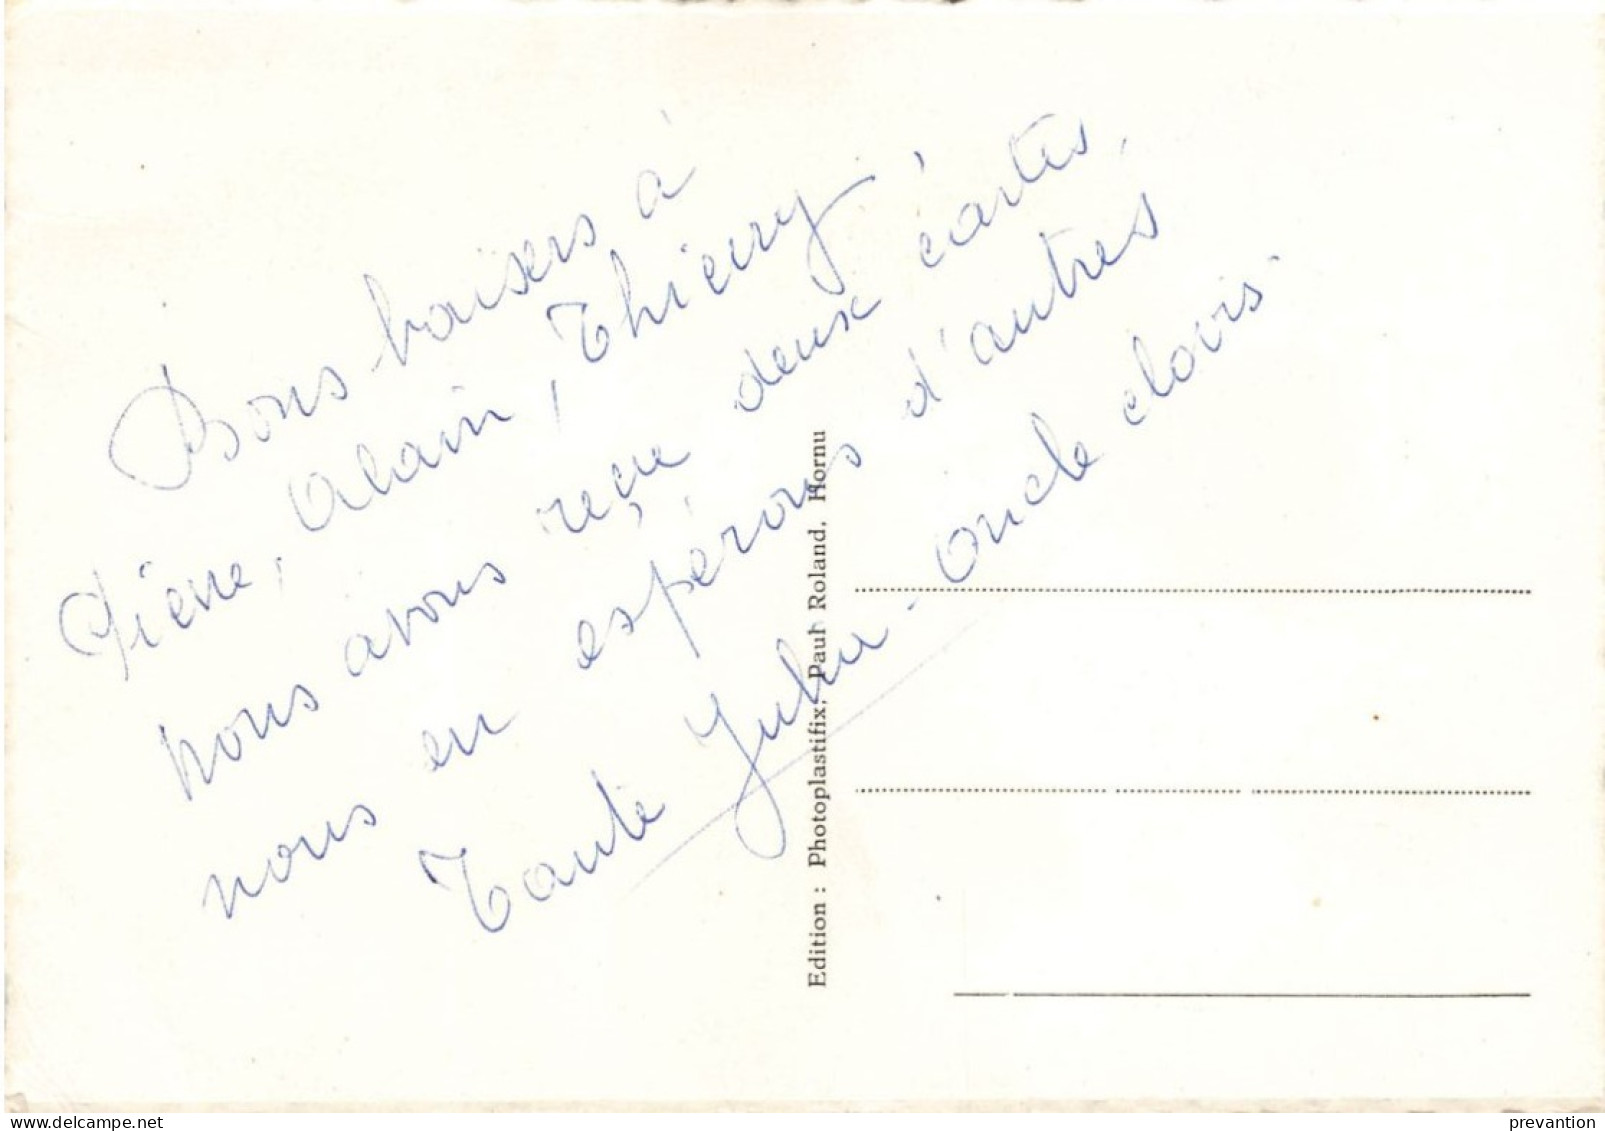 Bons baisers à
Pierre, Alain, Thierry
nous avons reçu deux cartes,
nous en espérons d'autres
Tante - oncle clovis.
Edition : Photoplastifix, Paul Roland, Hornu
www.delcampe.net
prevantion